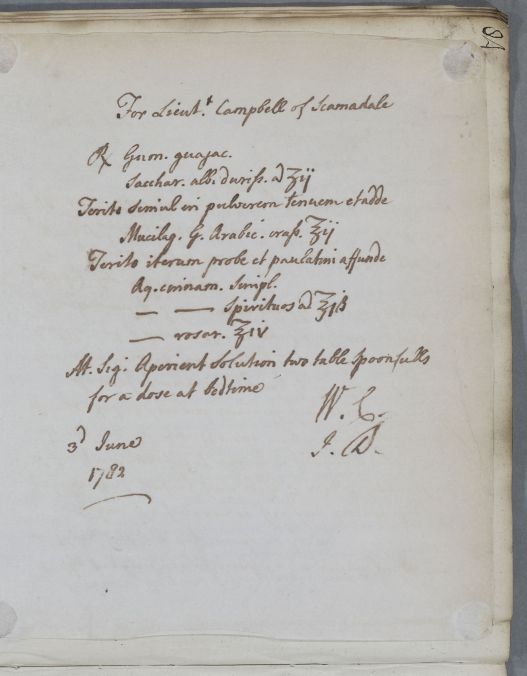 84
For Lieut.t Campbell of Scamadale
℞ Gum. guajac.
Sacchar. alb. duriss. a ʒij
Terito simul in pulverem tenuem et adde
Mucilag. G. Arabic. crass. ʒij
Terito iterum probe et paulatim affunde
Aq. cinnam. simpl.
— — Spirituos a ℥jß
— rosar. ℥iv
M. Sig. Aperient solution two table spoonfulls
for a dose at bedtime
W. C.
J. D.
3d June
1782